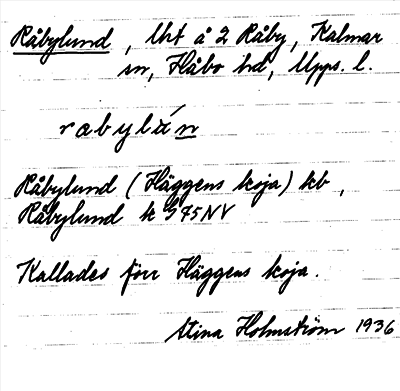 Råbylund, Uht å 2 Råby, Kalmar
sn, Håbo hd, Upps. l.
råbylún
Råbylund (Häggens koja) kb,
Råbylund k 975NV
Kallades förr Häggens koja.
Stina Holmström 1936